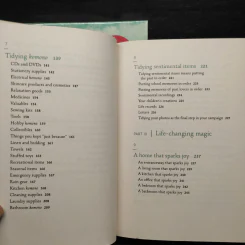 7
Tidying komono 159
CDs and DVDs 161
Stationery supplies
Electrical komono
Skincare products and cosmetics
Relaxation goods
Medicines
Valuables
Sewing kits
Tools
Hobby komono
Collectibles
Things you kept "just because"
Linen and bedding
Towels
Stuffed toys
Recreational items
Seasonal items
Emergency supplies
Rain gear
Kitchen komono
Cleaning supplies
Laundry supplies
Bathroom komono
8
Tidying sentimental items
Tidying sentimental items means putting
the past in order
Sorting school memories in order
Sorting memories of past lovers in order
Sentimental recordings
Your children's creations
Life records
Letters
Tidying your photos as the final step in your campaign
PART III | Life-changing magic
9
A home that sparks joy 237
An entry that sparks joy
A living room that sparks joy
A kitchen that sparks joy
An office that sparks joy
A bedroom that sparks joy
A bathroom that sparks joy